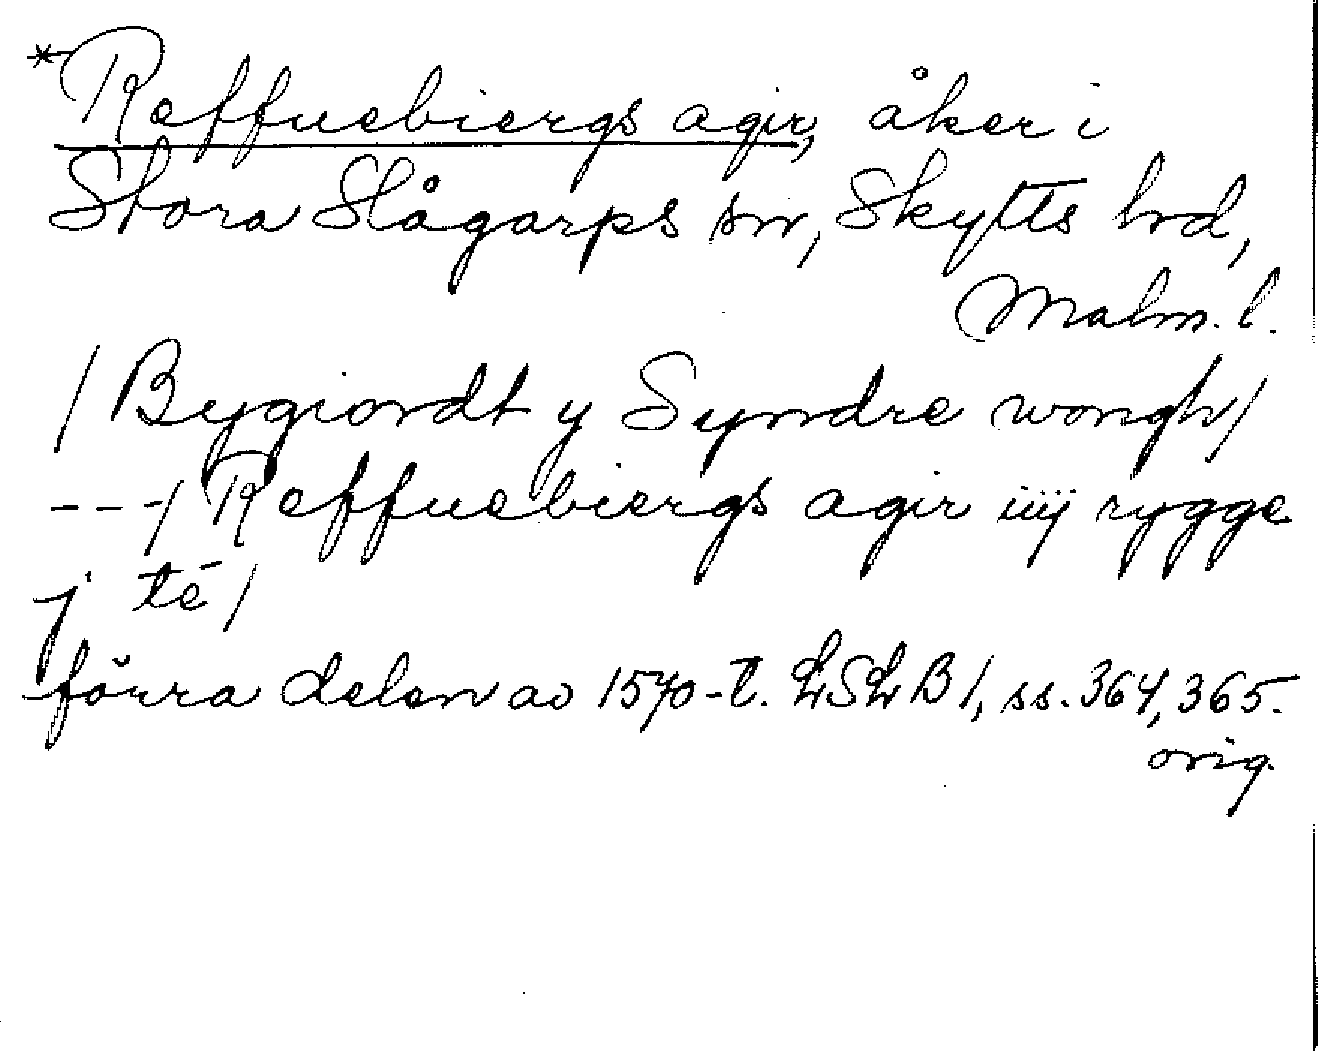 *Reffuebiergs agir, åker i
Stora Slågarps sn, Skytts hd,
Malm. l.
/ Bygiordt y Syndre wongh/
---/ Reffuebiergs agir iiij rygge
j té /
förra delen av 1570-t. LSLB 1, ss. 364, 365.
orig.